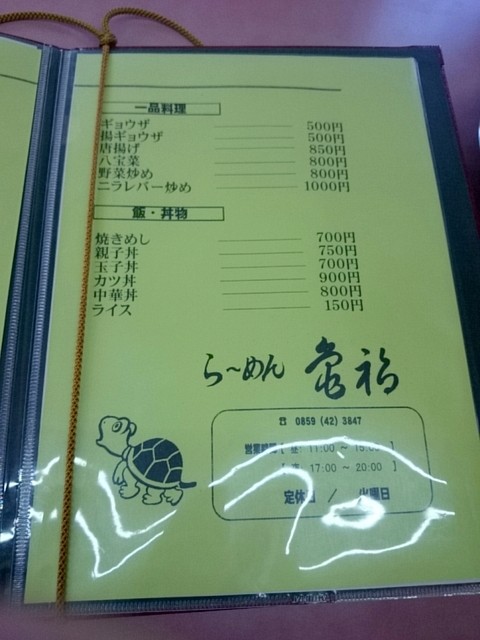 一品料理
ギョウザ 500円
揚ギョウザ 500円
唐揚げ 850円
八宝菜 800円
野菜炒め 800円
ニラレバー炒め 1000円
飯・丼物
焼きめし 700円
親子丼 750円
玉子丼 700円
カツ丼 900円
中華丼 800円
ライス 150円
ら~めん 亀福
☎ 0859 (42) 3847
営業時間 【 昼: 11:00 ~ 15:00 】
【 夜: 17:00 ~ 20:00 】
定休日 / 火曜日